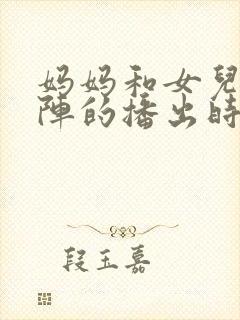 妈妈和女兒
陣的播出時
段玉嘉